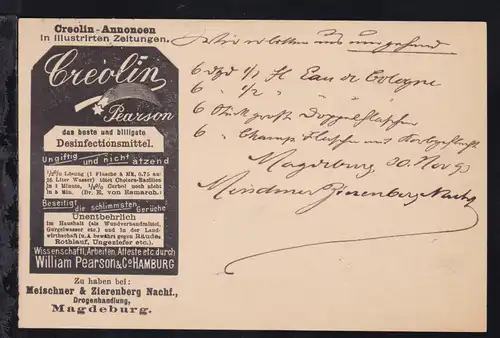 Creolin-Annoncen
in illustrirten Zeitungen.
Creolin
Pearson
das beste und billigste
Desinfectionsmittel.
Ungiftig und nicht ätzend
Lösung (1 Flasche à Mk. 0.75 auf
Liter Wasser) tötet Cholera-Bacillen
in 1 Minute, Carbol noch nicht
in 5 Min. (Dr. E. von Esmarch.)
Beseitigt die schlimmsten Gerüche
Unentbehrlich
im Haushalt (als Wundverbandmittel,
Gurgelwasser etc.) und in der Land-
wirthschaft (u. A. bewährt gegen Räude,
Rothlauf, Ungeziefer etc.)
Wissenschaftl. Arbeiten, Atteste etc. durch
William Pearson & Co HAMBURG
Zu haben bei:
Meischner & Zierenberg Nachf.,
Drogenhandlung,
Magdeburg.
Wir erbitten uns umgehend
6 Dtzd 1/1 Fl Eau de Cologne
6 " 1/2 "
6 Stück große Doppelflaschen
6 " Champ Flaschen mit Korbgeflecht
Magdeburg Nov 93
Meischner Zierenberg Nachf